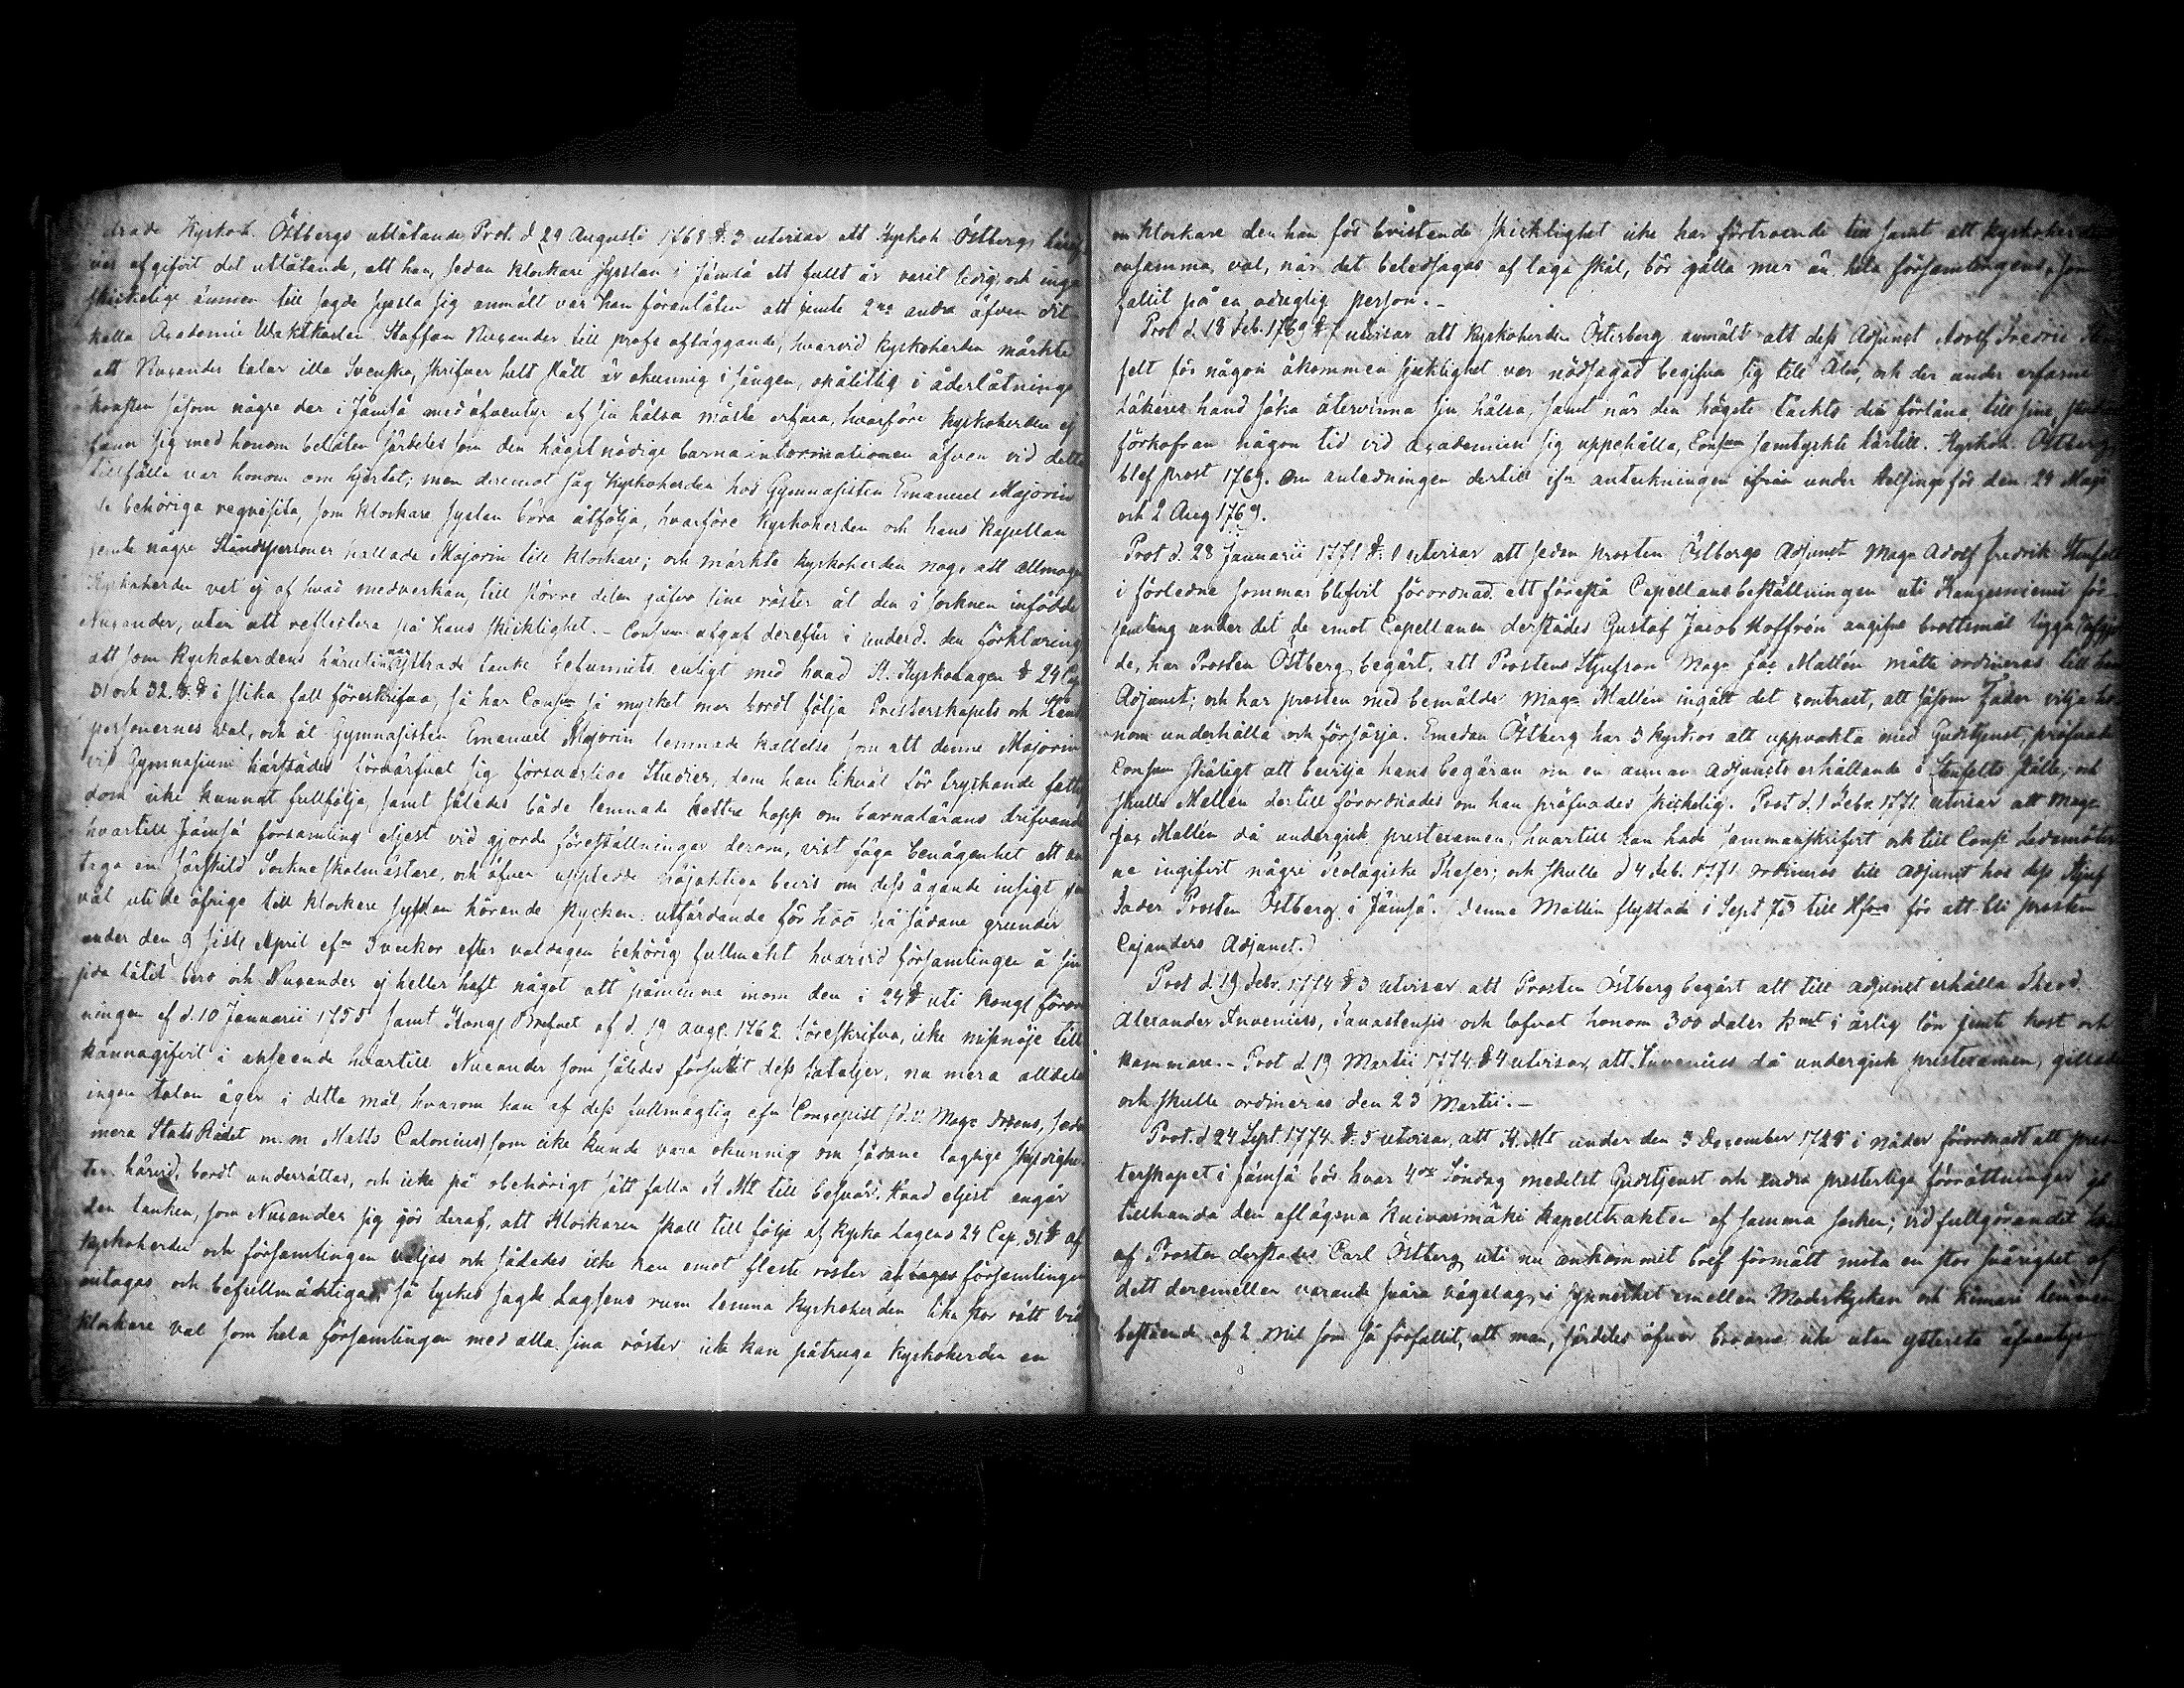 Kyrkoh. Östbergs utlåtande Prot. d 29 Augusti 1768 § 3 utvisar att Kyrkoh Östberg
afgifvit det utlåtande, att han, sedan klockare syslan i Jämsä ett fullt år varit ledig, och inga
skickelige ämnen till sagde sysla sig anmält var han föranlåten att jemte 2ne andra äfven dit
kalla Academie Waktkarlen Staffan Nusander till profs afläggande, hvarvid kyrkoherden märkte
att Nusander talar illa Svenska, skrifver helt slätt är okunnig i sången, opålitlig i åderlåtnings
konsten såsom någre der i Jämsä med äfventyr af sin hälsa måste erfara, hvarföre kyrkoherden ej
fann sig med honom belåten särdeles som den högst nödige barnainformationen äfven vid detta
tillfälle var honom om hjertat; men deremot såg Kyrkoherden hos Gymnasisten Emanuel Majorin
de behöriga requisita, som klockare syslan böra åtfölja, hvarföre kyrkoherden och hans kapellan
jemte någre Ståndspersoner kallade Majorin till klockare; och märkte kyrkoherden nog, att allmogen
Kyrkoherden vet ej af hvad medverkan, till större delen gåfvo sine röster åt den i socknen infödde
Nusander, utan att reflectera på hans skicklighet. - Consm utgaf derefter i underd. den förklaring
att som Kyrkoherdens härutinnan yttrade tanke befunnits enligt med hvad K. Kyrkolagen § 24 Cap
31 och 32 §§ i slika fall föreskrifva, så har Consm så mycket mer bordt följa Presterskapets och Stånds
personernes val, och åt Gymnasisten Emanuel Majorin lemnade kallelse som att denne Majorin
vid Gymnasium härstädes förvärfvat sig försvarliga Studier, dem han likväl för tryckande fattig
dom icke kunnat fullfölja, samt således både lemnade bättre hopp om barnalärans drifvande
hvartill Jämsä församling eljest vid gjorde föreställningar derom, vist föga benägenhet att an
taga en särskild Sockneskolmästare, och äfven upptedde nöjaktiga bevis om dess ägande insigt
väl uti de öfrige till klockare sysslan hörande stycken utfärdande för hd på sådane grunder
under den 9 siste April efr 3 veckor efter valdagen behörig fullmakt hvarvid församlingen å sin
sida låtit bero och Nusander ej heller haft något att påminna inom den i 24 § uti Kongl förord
ningen af d. 10 Januarii 1755 samt Kongl Brefvet af d. 19 Augt. 1762 föreskrifva, icke misnöje till
kännagifvit i anseende hvartill Nusander som således försuttit dess fatalier, nu mera alldeles
ingen talan äger i detta mål, hvarom han af dess fullmägtig efr Concepist (d.v. Mage Docens, seder
mera StatsRådet m.m Matts Calonius) som icke kunde vara okunnig om sådane laglige skyldighe
ter härvid bordt underrättas, och icke på obehörigt sätt falla K. Mt till besvär. Hvad eljest angår
den tanken, som Nusander sig gör deraf, att Klockaren skall till följe af Kyrko Lagens 24 Cap. 31 § af
kyrkoherden och församlingen väljas och således icke kan emot fleste röster af församlingen
antagas och befullmäktigas så tyckes sagde Lagsens rum lemna Kyrkoherden lika stor rätt vid
klockare val som hela församlingen med alla sina röster icke kan påtruga Kyrkoherden en
en Klockare den han för bristande skicklighet icke har förtroende till samt att kyrkoherdens
ensamma val, när det beledsagas af laga skäl, bör gälla mer än hela församlingens, som
fallit på en oduglig person. -
Prot d. 18 Feb. 1769 § 7 utvisar att Kyrkoherden Östberg anmält att dess Adjunct Adolf Fredric
felt för någon åkommen sjuklighet var nödsagad begifva sig till Åbo, och der under erfarne
Läkeres hand söka återvinna sin hälsa, samt när den högste täckts den förläna, till sine
förkofran någon tid vid academien sig uppehålla, Consm samtyckte härtill. Kyrkoh. Östberg
blef prost 1769. Om anledningen dertill efr anteckningen under Helsinge för den 24 Maji
och 2 Aug 1769.
Prot d. 28 Januarii 1771 § 1 utvisar att sedan prosten Östbergs Adjunct Mage Adolf Fredrik Stenfelt
i förledne sommar blifvit förordnad att förestå Capellansbeställningen uti Kangasniemi för-
samling under det de emot Capellanen derstädes Gustaf Jacob Hoffrén angifne brottmål ligga
de, har Prosten Östberg begärt, att Prostens Styfson Mage Jac Mallén måtte ordineras till hans
Adjunct; och har prosten med bemälde Mage Mallén ingått det contract, att såsom Fader vilja ho
nom underhålla och försörja. Emedan Östberg har 3 kyrkor att uppvakta med Gudstjenst, pröfvade
Consm skäligt att bevilja hans begäran om en annan adjuncts erhållande i Stenfelts ställe, och
skulle Mallén dertill förordnades om han pröfvades skickelig. Prot d. 1 Feb. 1771 utvisar att Mage
Jac Mallén då undergick prestexamen, hvartill han hade sammanskrifvit och till Consi Ledamöter
ne ingifvit någre Teologiske Theser; och skulle d 4 Feb. 1771 ordineras till Adjunct hos dess Styf
Fader Prosten Östberg i Jämsä. (Denne Mallén flyttade i Sept 73 till Hfors för att bli prosten
Cajanders Adjunct.)
Prot d. 19 Febr. 1774 § 3 utvisar att Prosten Östberg begärt att till adjunct erhålla Theod.
Alexander Invenius, Tavastensis och lofvat honom 300 daler kmt i årlig lön jemte kost och
kammare. - Prot d. 19 Martii 1774 § 4 utvisar, att Invenius då undergick prestexamen, gillades
och skulle ordineras den 23 Martii. -
Prot. d 24 Sept 1774 § 5 utvisar, att K. Mt under den 3 December 1728 i nåder förordnadt att pres
terskapet i Jämsä bör hvar 4de Söndag medelst Gudstjenst och andra presterliga förrättningar gå
tillhanda den aflägsna Kuivasmäki kapelltrakten af samma socken; vid fullgörandet
af Prosten derstädes Carl Östberg uti nu ankommit bref förmält möta en stor svårighet af
dett deremellan varande svåra vägelag i synnerhet emellan Moderkyrkan och Kimari hemman
bestående af 2 mil som så förfallit, att man, särdeles öfver broarne icke utan ytterste äfventyr